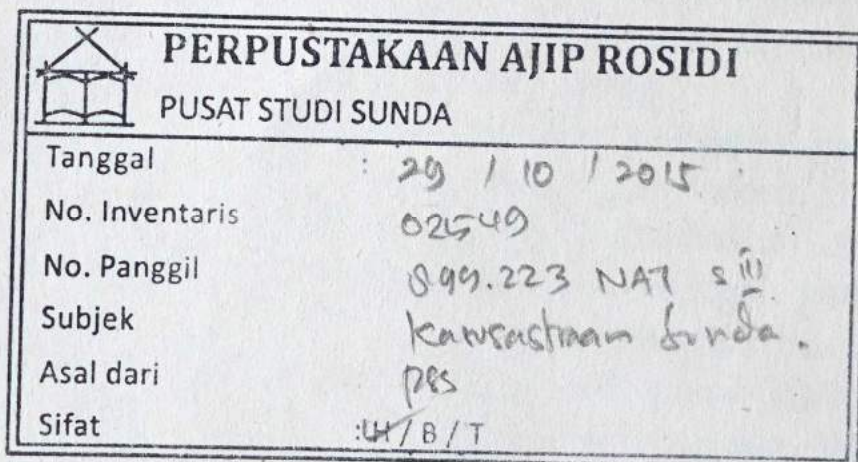 PERPUSTAKAAN AJIP ROSIDI
PUSAT STUDI SUNDA
Tanggal : 29 / 10 / 2015
No. Inventaris 02549
No. Panggil 899.223 NAT s III
Subjek Kasusastraan Sunda.
Asal dari PSS
Sifat :LH / B / T